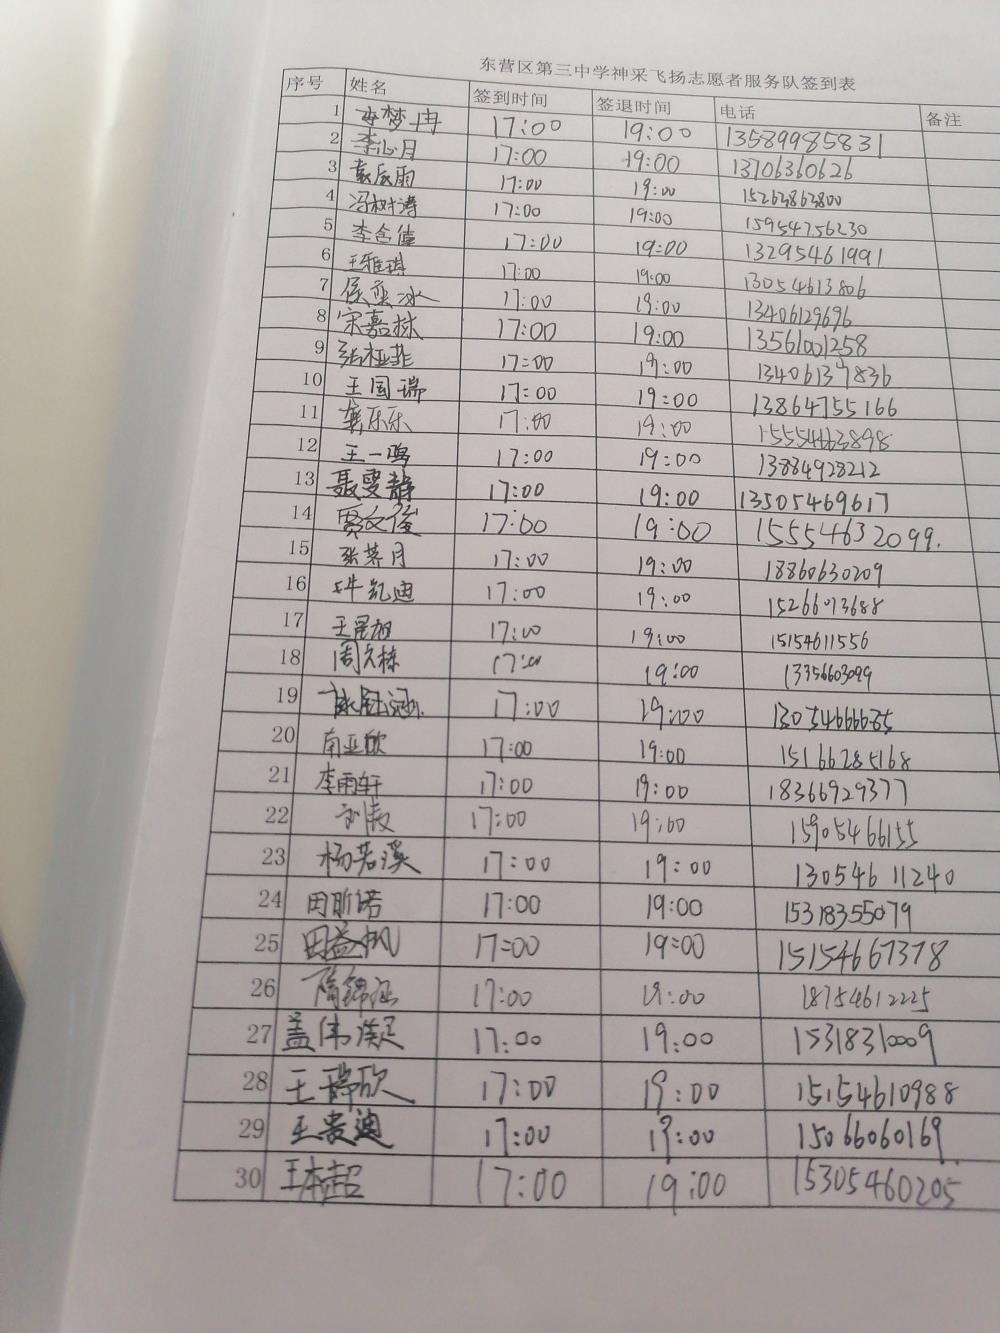 东营区第三中学神采飞扬志愿者服务队签到表
序号 姓名 签到时间 签退时间 电话 备注
1 李梦冉 17:00 19:00 13589985831
2 李沁月 17:00 19:00 13706360626
3 袁辰雨 17:00 19:00 15263863800
4 冯树涛 17:00 19:00 15954756230
5 李含值 17:00 19:00 13295461991
6 王雅琪 17:00 19:00 13054613806
7 侯奕冰 17:00 19:00 13406129696
8 宋嘉栋 17:00 19:00 13561001258
9 张桠菲 17:00 19:00 13406139836
10 王国瑞 17:00 19:00 13864755166
11 龚乐乐 17:00 19:00 15554663898
12 王一鸣 17:00 19:00 13884928212
13 聂雯静 17:00 19:00 13505469617
14 贾文俊 17:00 19:00 15554632099.
15 张荞月 17:00 19:00 18860630209
16 牛凯迪 17:00 19:00 15266013688
17 王星旭 17:00 19:00 15154611556
18 周久栋 17:00 19:00 13356603099
19 17:00 19:00
20 南亚欣 17:00 19:00 15166285168
21 李雨轩 17:00 19:00 18366929377
22 17:00 19:00 15905466155
23 杨若溪 17:00 19:00 13054611240
24 田昕诺 17:00 19:00 15318355079
25 田益帆 17:00 19:00 15154667378
26 隋锦涵 17:00 19:00 18754612225
27 盖伟凝 17:00 19:00 15318310009
28 王瑞欣 17:00 19:00 15154610988
29 王贵迪 17:00 19:00 15066060169.
30 王本超 17:00 19:00 15305460205